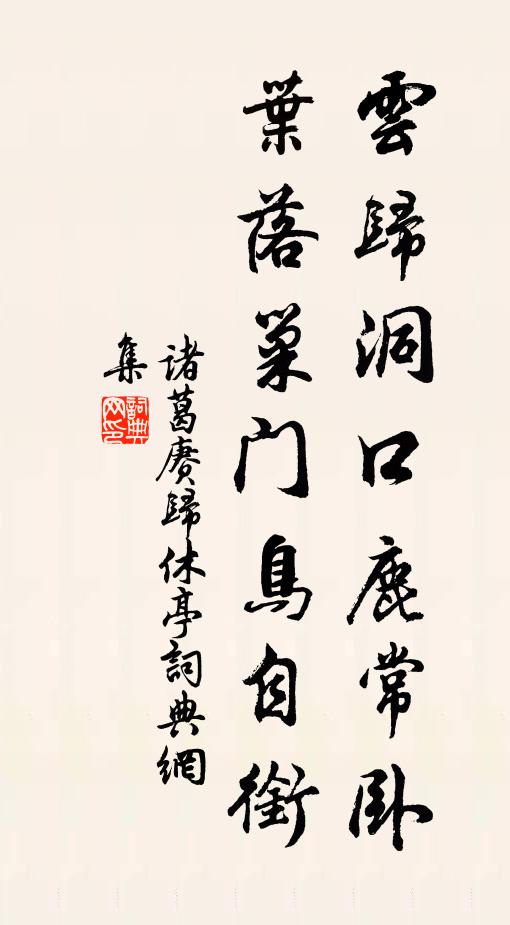 雲歸洞口鹿常卧
葉落巢門鳥自銜
諸葛賡歸休亭詞典網
集
詞典
网印